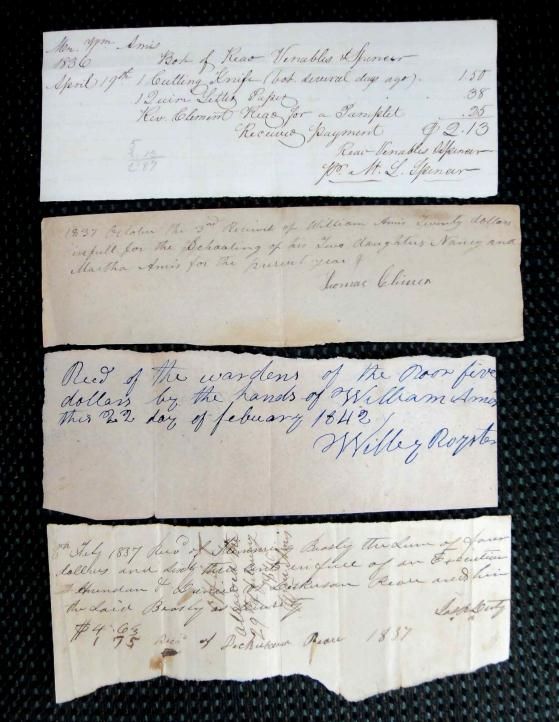 Mr. Wm. Amis
1836 Bot of Read Venables & Spencer
April 19th 1 Cutting Knife (bot several days ago) . 1.50
1 Quire Letter Paper . 38
Rev. Clement Read for a Pamplet .25
Received payment $2.13
Read Venables & Spencer
pr. M. L. Spencer
1837 October the 3rd Received of William Amis Twenty dollars
in full for the Schooling of his Two daughters Nancy and
Martha Amis for the present year
Thomas
Recd of the wardens of the Poor five
dollars by the hands of William Ames
this 22 day of febuary 1842
Willey Royster
July 1837 Recd of Beasly the Sum of four
dollars and Sixty three in full of an Execution
of Dickerson and him
the said Beasly as Security
$4.63
1 75 Recd of Dickerson 1837